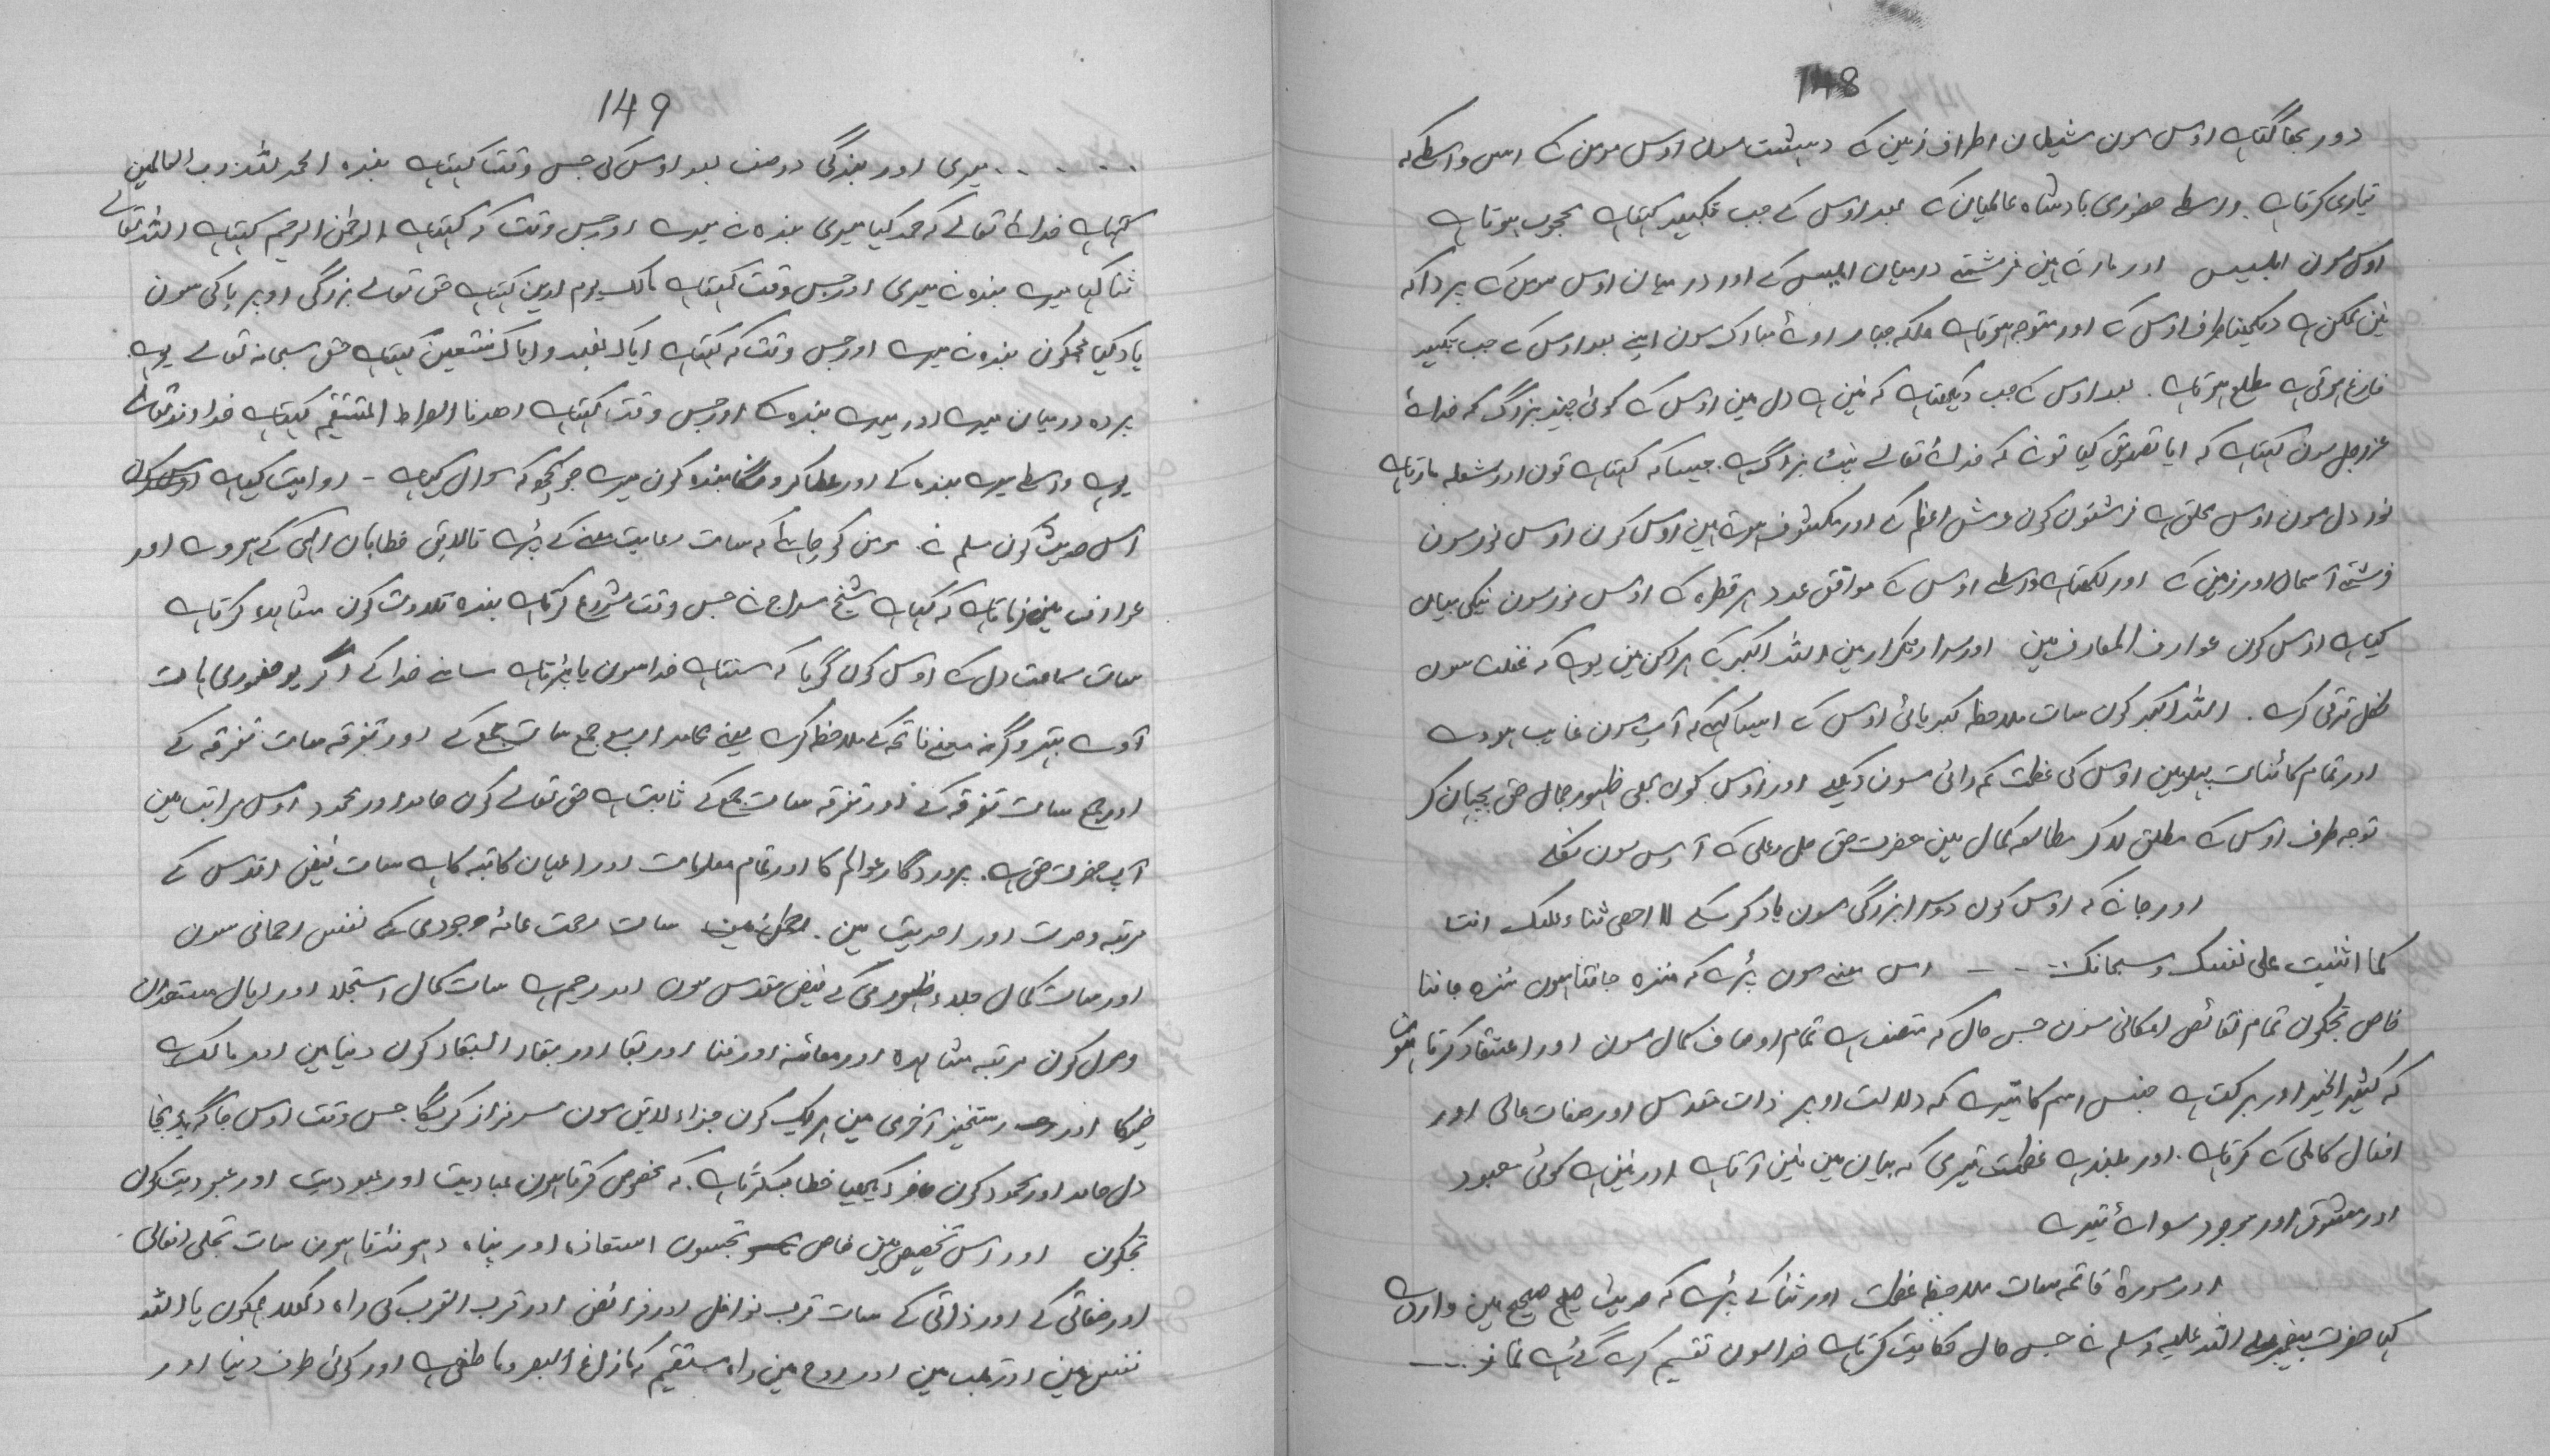 148
دور بھاگتاہے اوس سون شیطان اطراف زمین کے دہشت سون اوس مومن کے اس واسطے کہ
تیاری کرتاہے واسطے حضوری بادشاہ عالمیان کے بعد اوس کے جب تکبیر کہتاہے محجوب ہوتاہے
اوس سون ابلیس اور مارتے ہین فرشتے درمیان ابلیس کے اور درمیان اوس مومن کے پردا کہ
نین ممکن ہے دیکھنا طرف اوس کے اور متوجہ ہوتاہے ملکہ جبار روئے مبارک سون اپنے بعد اوس کے جب تکبیر
فارغ ہوتی ہے مطلع ہوتاہے۔ بعد اوس کے جب دیکھتاہے کہ نین ہے دل مین اوس کے کوئی چیز بزرگ کہ خدائے
عزوجل سون کہتاہے کہ ایا تصدیق کیا تونے کہ خدائے تعالے بہت بزرگ ہے۔ جیساکہ کہتاہے تون اور شعلہ مارتاہے
نور دل سون اوس ملحق ہے فرشتون کون عرش اعظم کے اور مکشوف ہوتے ہین اوس کون اوس نور سون
فرشتے آسمان اور زمین کے اور لکھتاہے واسطے اوس کے موافق عدد ہر قطرہ کے اوس نور سون نیکی بیان
کیاہے اوس کون عوارف المعارف مین اور سرار تکرار مین اللہ اکبر کے ہر رکن مین یوہے کہ غفلت سون
نکل ترقی کرے۔ اللہ اکبر کون سات ملاحظہ کبریائی اوس کے ایسا کہے کہ آپ سون غایب ہووے
اور تمام کائنات پہلو مین اوس کی عظمت کے رائی سون دیکھے اور اوس کون مجلی ظہور جمال حق پہچان کر
توجہ طرف اوس کے مطلق لاکر مطالعہ کمال مین حضرت حق جل وعلی کے آوس سون نکلے
اور جانے کہ اوس کون دوسرا بزرگی سون یاد کرسکے لا احصی ثناء علیک انت
کما اثنیت علی نفسک وسبحانک۔۔۔ اس معنے سون پڑے کہ منزہ جانتا ہون منزہ جاننا
خاص تجکون تمام نقائص امکانی سون جس حال کہ متصف ہے تمام اوصاف کمال سون اور اعتقاد کرتا ہون
کہ کثیر الخیر اور برکت ہے جنس اسم کا تیرے کہ دلالت اوپر ذات مقدس اور صفات عالی اور
افعال کاملی کے کرتاہے۔ اور بلند ہے عظمت تیری کہ بیان مین نین آتاہے اور نین ہے کوئی معبود
اور معشوق اور موجود سوائے تیرے
اور سورۃ فاتحہ سات ملاحظہ عظمت اور ثنا کے پڑے کہ حدیث صحیح مین وارد ہے
کہا حضرت پیغمبر صلی اللہ علیہ وسلم نے جس حال حکایت کرتاہے خدا سون تقسیم کرے گئے ہے نماز۔۔۔
149
۔۔۔۔۔ میری اور بندگی دو صنف بعد اوس کی جس وقت کہتاہے بندہ الحمد للہ رب العالمین
کہتاہے خدائے تعالے کہ حمد کیا میری بندہ نے میرے اور جس وقت کہ کہتاہے الرحمٰن الرحیم کہتاہے اللہ تعالے
ثنا کہا میرے بندہ نے میری اور جس وقت کہتاہے مالک یوم الدین کہتاہے حق تعالے بزرگی اوپر پاکی سون
یاد کیا مجکون بندہ نے میرے اور جس وقت کہ کہتاہے ایاک نعبد وایاک نستعین کہتاہے حق سبحانہ تعالے یوہے
پردہ درمیان میرے اور میرے بندہ کے اور جس وقت کہتاہے اھدنا الصراط المستقیم کہتاہے خداوند تعالے
یوہے واسطے میرے بندہ کے اور عطا کرونگا بندہ کون میرے جو کچھ کہ سوال کیاہے۔ روایت کیاہے
اس حدیث کون مسلم نے۔ مومن کو چاہئے کہ سات رعایت معنے کے پڑے تا لایق خطابان الہی کے ہووے اور
عوارف مین فرماتاہے کہ کہاہے شیخ سراج نے جس وقت شروع کرتاہے بندہ تلاوت کون مشاہدا کرتاہے
سات سماعت دل کے اوس کون گویا کہ سنتاہے خدا سون یا پڑتاہے سامنے خدا کے اگر یو حضوری ہات
آوے بہتر وگرنہ معنے فاتحہ کے ملاحظہ کرے یعنے محامد اربع جمع سات جمع کے اور تفرقہ سات تفرقہ کے
اور جمع سات تفرقہ کے اور تفرقہ سات جمع کے ثابت ہے حق تعالے کون حامد اور محمود اوس مراتب مین
آپ حضرت حق ہے۔ پروردگار عوالم کا اور تمام معلومات اور اعیان ثابتہ کا ہے سات فیض اقدس کے
مرتبہ وحدت اور احدیت مین۔ سات رحمت عامہ وجودی کے نفس رحمانی سون
اور سات کمال جلاء ظہوری کے فیض مقدس سون اور رحیم ہے سات کمال استجلا اور ایصال مستعدان
وصل کون مرتبہ مشاہدہ اور معائنہ اور فنا اور بقا اور بقاء البقاء کون دنیا مین اور مالک ہے
اور رستخیز آخری مین ہر یک کون جزاء لایق سون سرفراز کریگا جس وقت اوس جاگہ پہنچا
دل حامد اور محمود کون حاضر دیکھیا خطاب کرتاہے۔ کہ مخصوص کرتا ہون عبادیت اور عبودیت اور عبودیت کون
تجکون اور اس تخصیص مین خاص تجسون استعاذہ اور پناہ دہونڈتا ہون سات تجلی افعالی
اور صفاتی کے اور ذاتی کے سات قرب نوافل اور فرائض اور قرب القرب کی راہ دکھلا ہمکون یا اللہ
نفس مین اور قلب مین اور روح مین راہ مستقیم کہ مازاغ البصر وما طغی ہے اور کوئی طرف دنیا اور